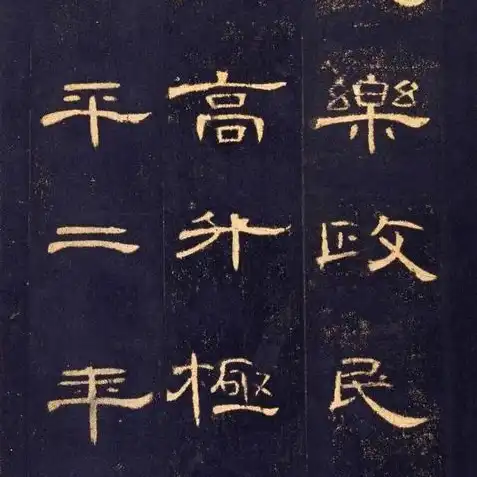 樂政民
高升極
平二年